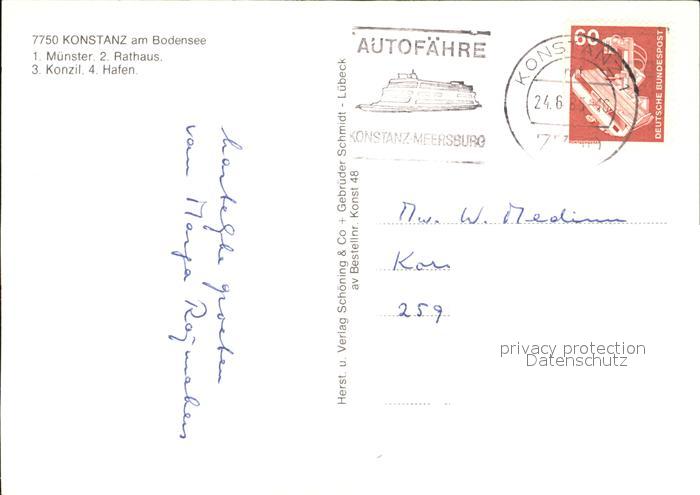 7750 KONSTANZ am Bodensee
1. Münster. 2. Rathaus.
3. Konzil. 4. Hafen.
AUTOFÄHRE
KONSTANZ-MEERSBURG
KONSTANZ 1
24.6.
60
DEUTSCHE BUNDESPOST
Herst. u. Verlag Schöning & Co + Gebrüder Schmidt - Lübeck
av Bestellnr. Konst 48
hartelijke groeten
van Marga Raijmakers
Mw. W. Medinn
Kar
259
privacy protection
Datenschutz